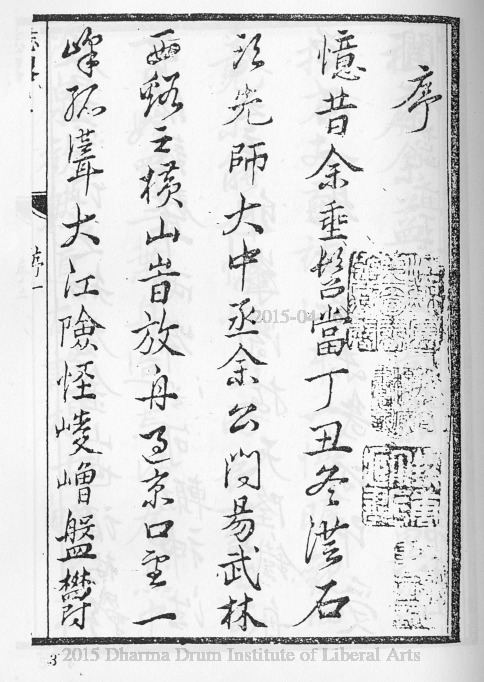 序
憶昔余垂髫當丁丑冬洪石
先師大中丞余公問易武林
西谿之橫山嘗放舟過京口望一
峰孤聳大江險怪崚嶒盤欝
序一
2015-04
3
2015 Dharma Drum Institute of Liberal Arts